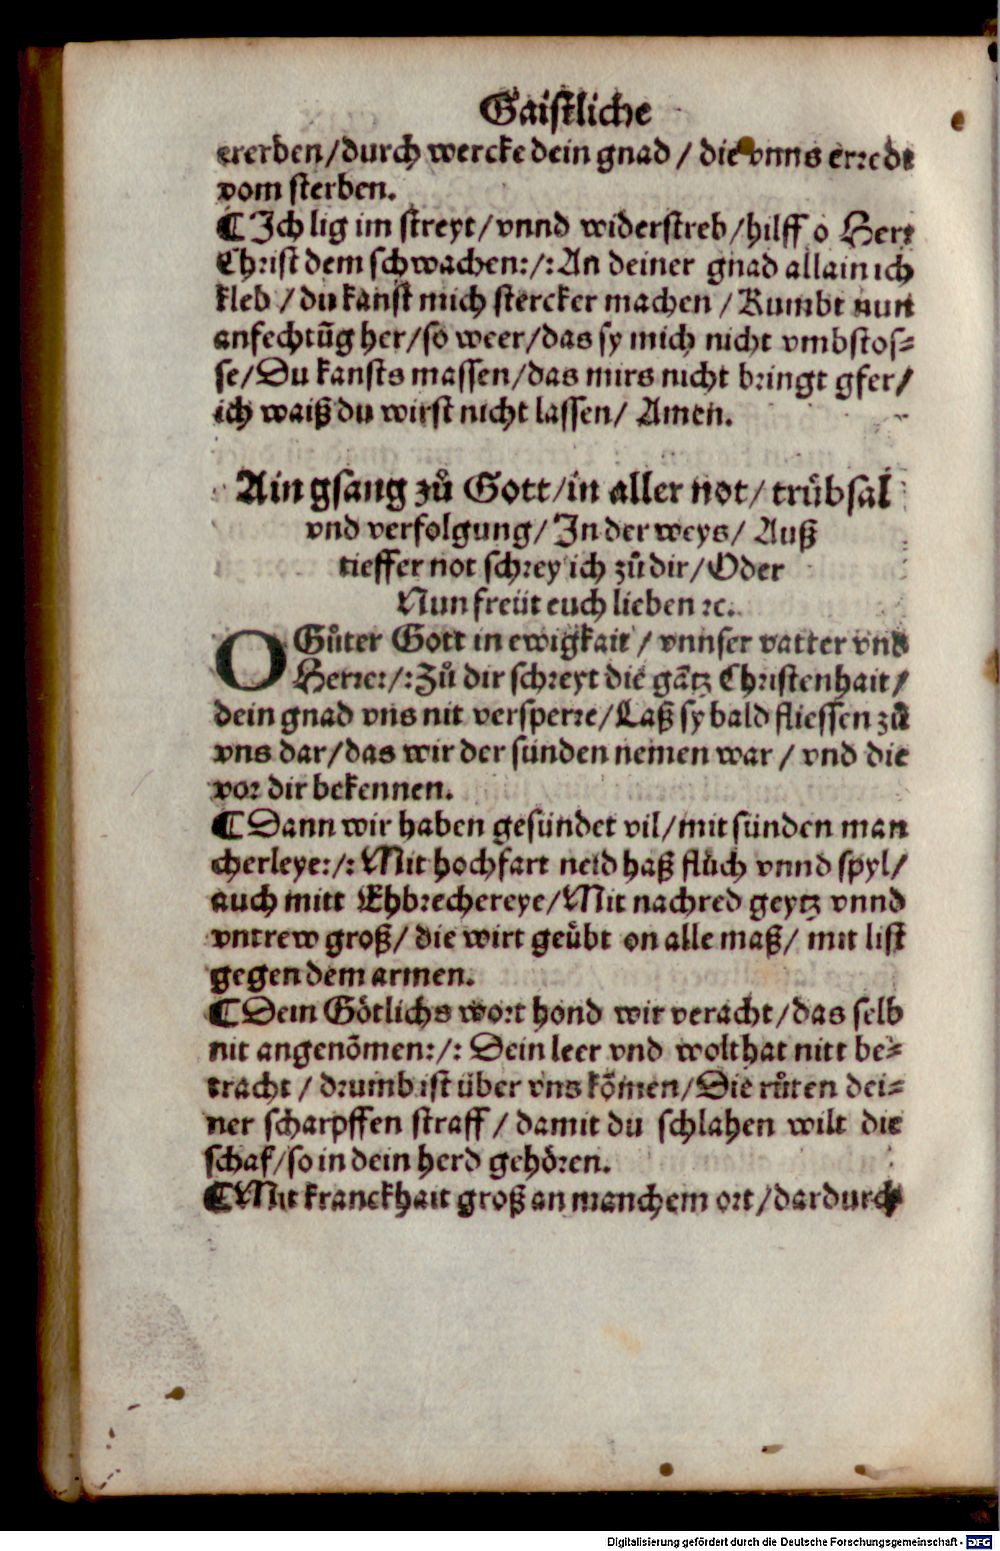 Gaistliche
ererben/durch wercke dein gnad / die vnns errede
vom sterben.
¶Ich lig im streyt/vnnd widerstreb/hilff o Herr
Christ dem schwachen:/:An deiner gnad allain ich
kleb / du kanst mich stercker machen / Kumbt nun
anfechtũg her/so weer/das sy mich nicht vmbstos⸗
se/Du kansts massen/das mirs nicht bringt gfer/
ich waiß du wirst nicht lassen/ Amen.
Ain gsang zů Gott/in aller not/ trübsal
vnd verfolgung/ In der weys/ Auß
tieffer not schrey ich zů dir/Oder
Nun freüt euch lieben ꝛc.
O Gůter Gott in ewigkait / vnnser vatter vnd
Herre:/:Zů dir schreyt die gãtz Christenhait/
dein gnad vns nit versperre/Laß sy bald fliessen zů
vns dar/das wir der sünden nemen war / vnd die
vor dir bekennen.
¶Dann wir haben gesündet vil/mit sünden man
cherleye:/:Mit hochfart neid haß flůch vnnd spyl/
auch mitt Ehbrechereye/Mit nachred geytz vnnd
vntrew groß/ die wirt geübt on alle maß/ mit list
gegen dem armen.
¶Dein Götlichs wort hond wir veracht/das selb
nit angenõmen:/: Dein leer vnd wolthat nitt be⸗
tracht / drumb ist über vns kõmen/Die růten dei⸗
ner scharpffen straff / damit du schlahen wilt die
schaf/so in dein herd gehören.
¶Mit kranckhait groß an manchem ort/dardurch
Digitalisierung gefördert durch die Deutsche Forschungsgemeinschaft - DFG